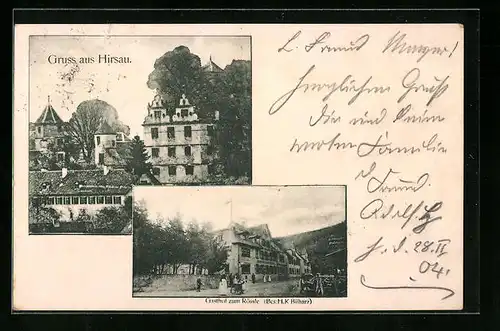 Gruss aus Hirsau.
L. Freund Mayer!
Herzlichen Gruß
Dir und Deiner
werten Familie
Freund
Adolf
28. II
04.
Gasthof zum Rössle (Bes: H.K. Bilharz)